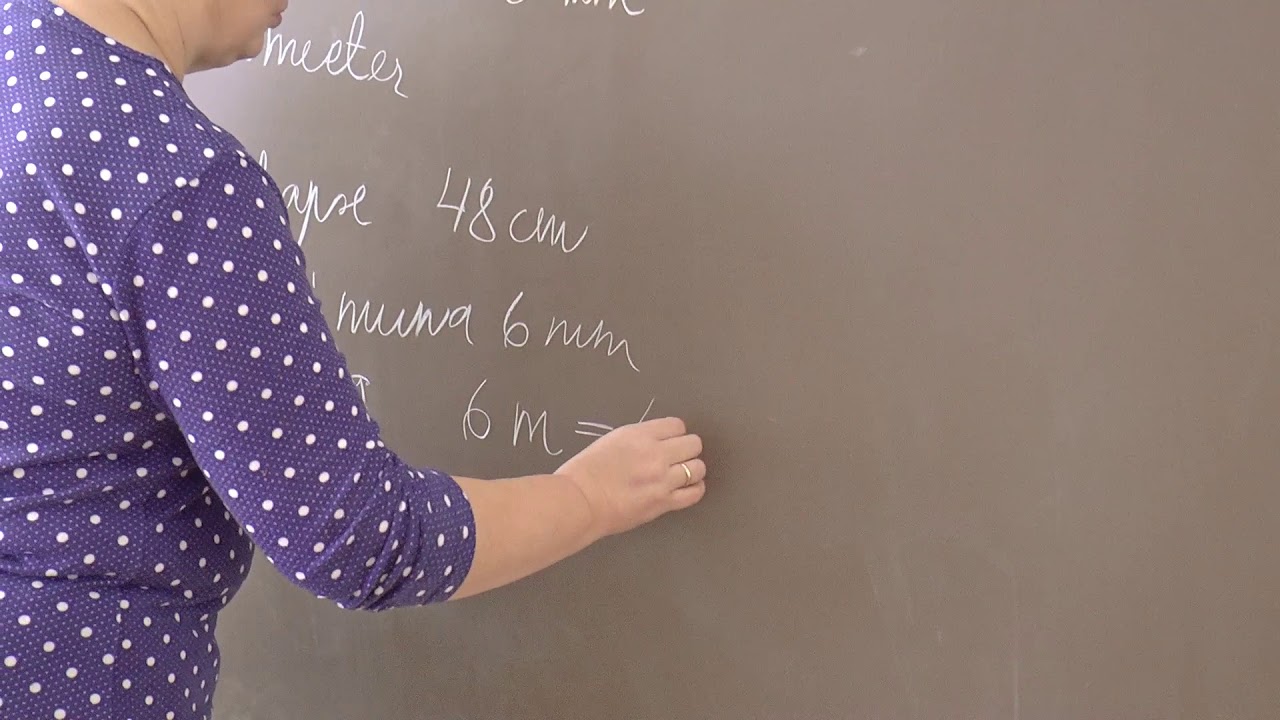 mm
meeter
lapse 48 cm
numa 6 mm
6 m =